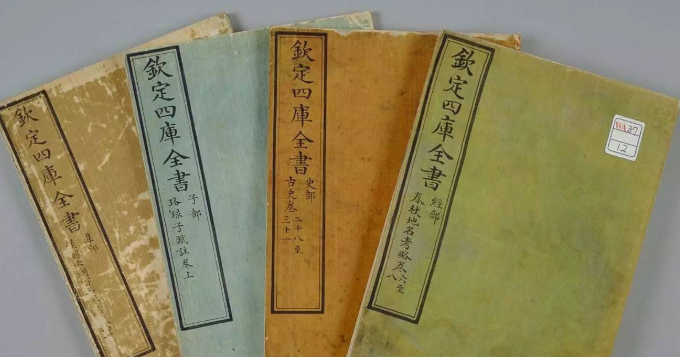 欽定四庫全書
集部
欽定四庫全書
子部
珞琭子賦註卷上
欽定四庫全書
史部
古史卷二十八至三十一
欽定四庫全書
經部
春秋地名考略卷六至八
37
12